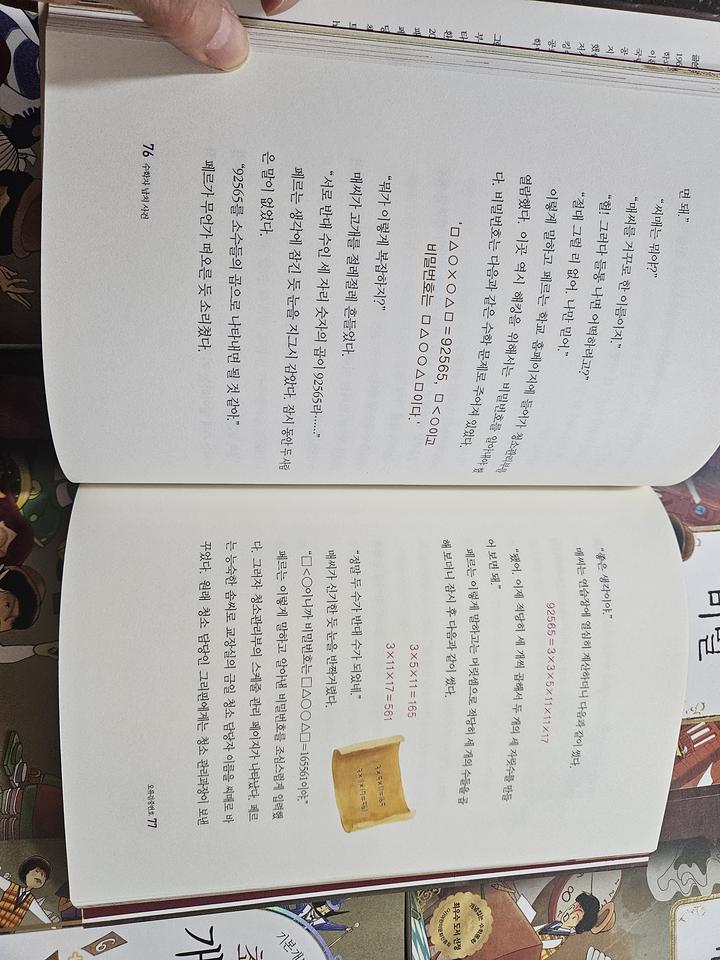 면 돼."
"씨매는 뭐야?"
"매씨를 거꾸로 한 이름이지."
"헐! 그러다 들통 나면 어떡하려고?"
"절대 그럴 리 없어. 나만 믿어."
이렇게 말하고 페르는 학교 홈페이지에 들어가 청소관리부를
열람했다. 이곳 역시 해킹을 위해서는 비밀번호를 알아내야 했
다. 비밀번호는 다음과 같은 수학 문제로 주어져 있었다.
'□△○×○△□=92565, □<○이고
비밀번호는 □△○○△□이다.'
"뭐가 이렇게 복잡하지?"
매씨가 고개를 절레절레 흔들었다.
"서로 반대 수인 세 자리 숫자의 곱이 92565라……."
페르는 생각에 잠긴 듯 눈을 지그시 감았다. 잠시 동안 두 사람
은 말이 없었다.
"92565를 소수들의 곱으로 나타내면 될 것 같아."
페르가 무언가 떠오른 듯 소리쳤다.
76 수학자 납치 사건
"좋은 생각이야."
매씨는 연습장에 열심히 계산하더니 다음과 같이 썼다.
92565=3×3×5×11×11×17
"됐어. 이제 적당히 세 개씩 곱해서 두 개의 세 자릿수를 만들
어 보면 돼."
페르는 이렇게 말하고는 머릿셈으로 적당히 세 개의 수들을 곱
해 보더니 잠시 후 다음과 같이 썼다.
3×5×11=165
3×11×17=561
"정말 두 수가 반대 수가 되었네."
매씨가 신기한 듯 눈을 반짝거렸다.
"□<○이니까 비밀번호는 □△○○△□=165561이야."
페르는 이렇게 말하고 알아낸 비밀번호를 조심스럽게 입력했
다. 그러자 청소관리부의 스케줄 관리 페이지가 나타났다. 페르
는 능숙한 솜씨로 교장실의 금일 청소 담당자 이름을 씨매로 바
꾸었다. 원래 청소 담당인 그리핀에게는 청소 관리과장이 보낸
3×5×11=165
3×11×17=561
오류검증번호 77
비밀
최우수 도서 선정